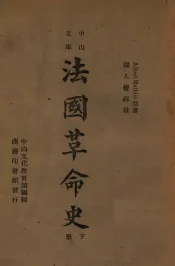 Albert Mathiez 原著
楊人楩譯註
中山
文庫
法國革命史
下冊
中山文化教育館編輯
商務印書館發行